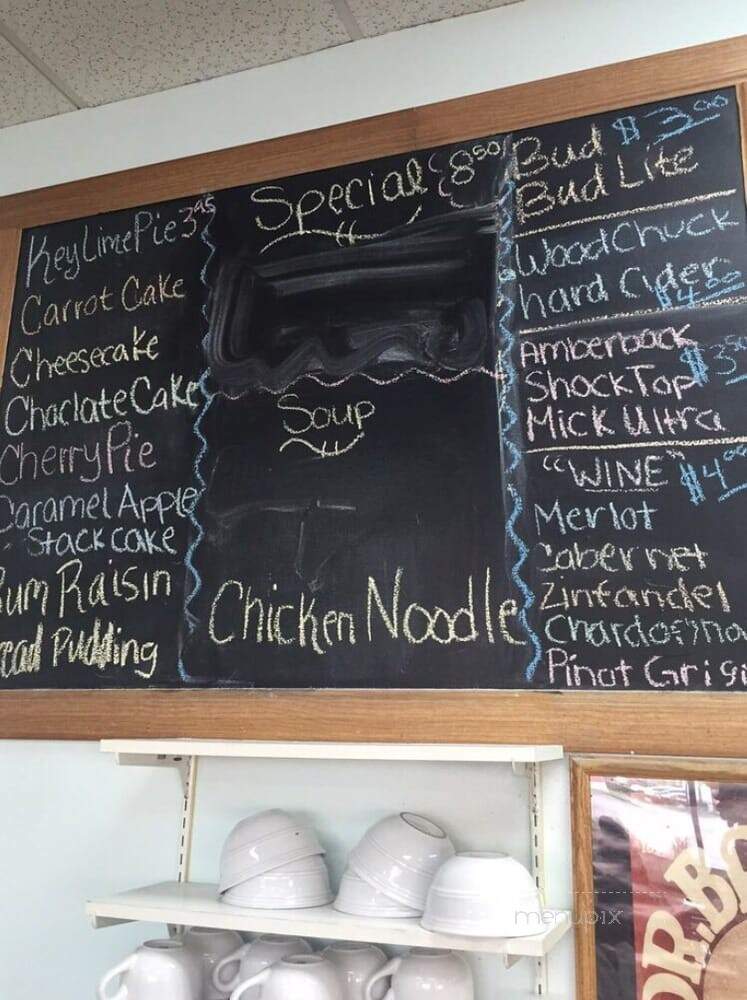 Key Lime Pie 3.95
Carrot Cake
Cheesecake
Choclate Cake
Cherry Pie
Caramel Apple
Stack cake
Rum Raisin
Bread Pudding
Special 8.50
Soup
Chicken Noodle
Bud $3.00
Bud Lite
WoodChuck
hard Cyder
$4.00
Amberbock
$3.50
ShockTop
Mick Ultra
"WINE" $4.00
Merlot
Cabernet
Zinfandel
Pinot Grigi
menupix